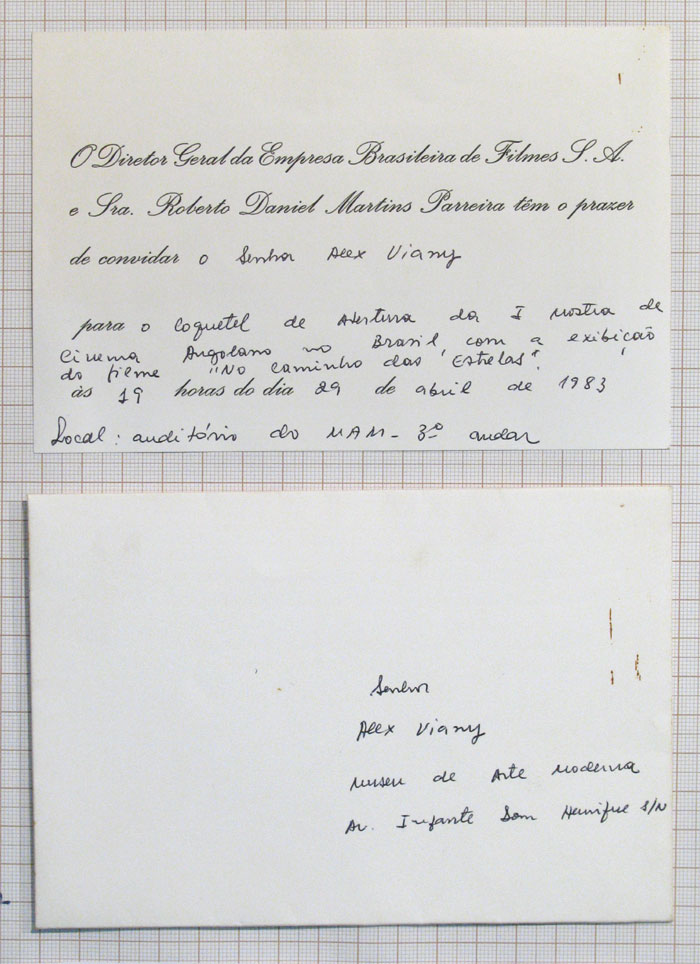 O Diretor Geral da Empresa Brasileira de Filmes S. A.
e Sra. Roberto Daniel Martins Parreira têm o prazer
de convidar o Senhor Alex Viany
para o coquetel de Abertura da I Mostra de
Cinema Angolano no Brasil, com a exibição
do filme "No Caminho das Estrelas".
às 19 horas do dia 29 de abril de 1983
Local: auditório do MAM - 3º andar
Senhor
Alex Viany
Museu de Arte Moderna
Av. Infante Dom Henrique S/N